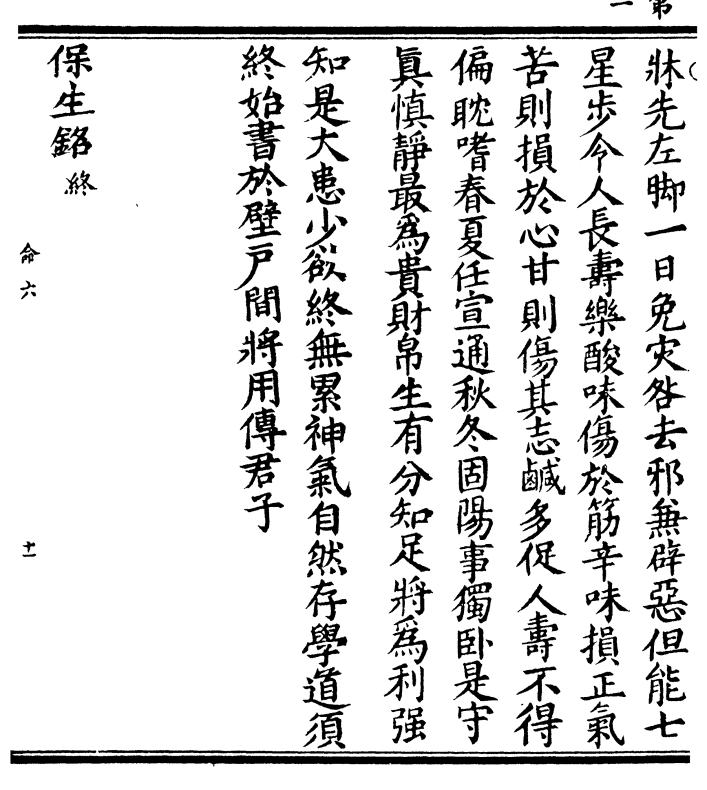 牀先左脚一日免灾咎去邪兼辟惡但能七
星步令人長壽樂酸味傷於筋辛味損正氣
苦則損於心甘則傷其志鹹多促人壽不得
偏耽嗜春夏任宣通秋冬固陽事獨卧是守
眞慎靜最爲貴財帛生有分知足將爲利强
知是大患少欲終無累神氣自然存學道須
終始書於壁戸間將用傳君子
保生銘終
命六
十一